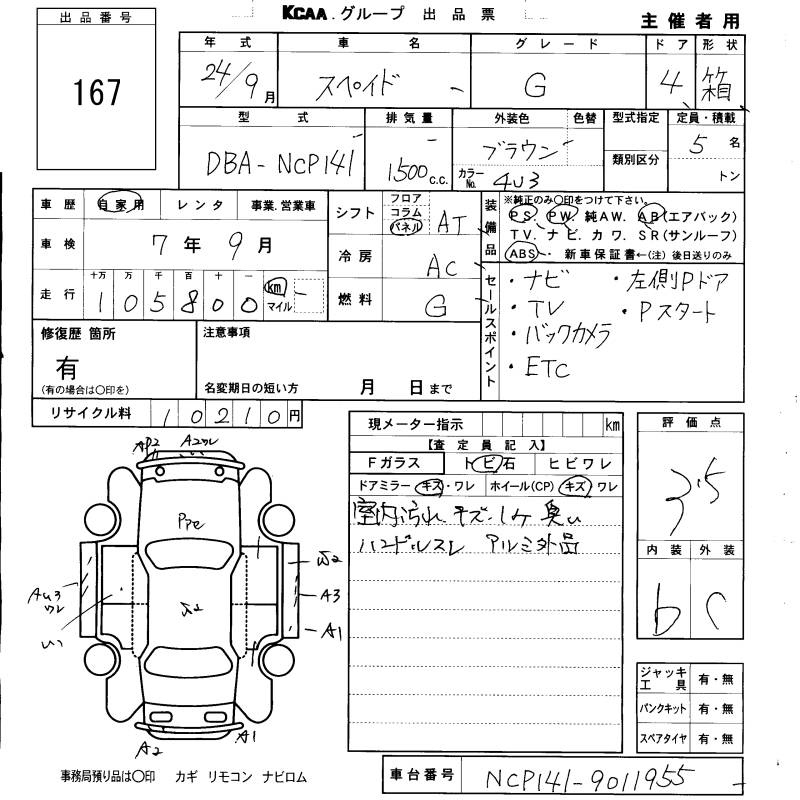 KCAA.グループ 出品票
主催者用
出品番号
167
年式 車名 グレード ドア 形状
24/9月 スペイド G 4 箱
型式 排気量 外装色 色替 型式指定 定員・積載
DBA-NCP141 1500c.c. ブラウン 5名
カラーNo. 4U3 類別区分 トン
車歴 自家用 レンタ 事業.営業車
車検 7年9月
走行 十万 万 千 百 十 一
105800 km マイル
シフト フロア コラム パネル AT
冷房 AC
燃料 G
装備品 ※純正のみ○印をつけて下さい。
PS. PW. 純AW. AB(エアバック)
TV. ナビ. カワ. SR(サンルーフ)
ABS・ 新車保証書←(注)後日送りのみ
セールスポイント
・ナビ ・左側Pドア
・TV ・Pスタート
・バックカメラ
・ETC
修復歴 箇所 注意事項
有
(有の場合は○印を) 名変期日の短い方 月 日まで
リサイクル料 10210円
現メーター指示 km
【査定員記入】
Fガラス トビ石 ヒビワレ
ドアミラー キズ・ワレ ホイール(CP) キズ ワレ
室内汚れ キズ・コゲ 臭い
ハンドルスレ アルミ外品
評価点
3.5
内装 外装
b C
ジャッキ工具 有・無
パンクキット 有・無
スペアタイヤ 有・無
AP2 A2ワレ
A3
A1
A2 A1
事務局預り品は○印 カギ リモコン ナビロム
車台番号 NCP141-9011955